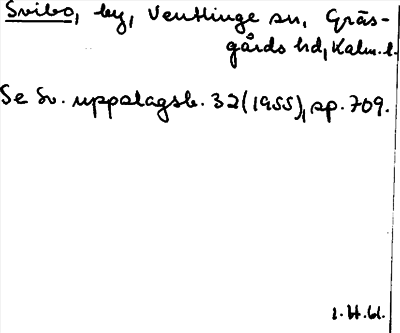 Svibo, by, Ventlinge sn, Gräs-
gårds hd, Kalm. l.
Se Sv. uppslagsb. 32 (1955), sp. 709.